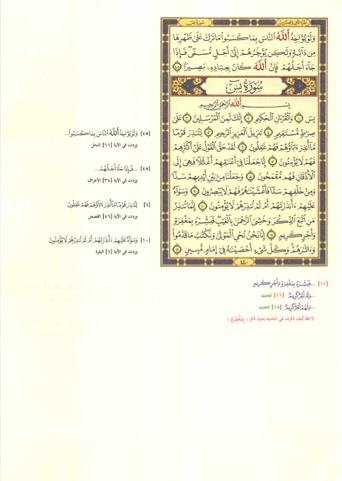 وَلَوْ يُؤَاخِذُ اللَّهُ النَّاسَ بِمَا كَسَبُوا مَا تَرَكَ عَلَىٰ ظَهْرِهَا
مِن دَابَّةٍ وَلَٰكِن يُؤَخِّرُهُمْ إِلَىٰ أَجَلٍ مُّسَمًّى فَإِذَا
جَاءَ أَجَلُهُمْ فَإِنَّ اللَّهَ كَانَ بِعِبَادِهِ بَصِيرًا ﴿٤٥﴾
سُورَةُ يس
بِسْمِ اللَّهِ الرَّحْمَٰنِ الرَّحِيمِ
يس ﴿١﴾ وَالْقُرْآنِ الْحَكِيمِ ﴿٢﴾ إِنَّكَ لَمِنَ الْمُرْسَلِينَ ﴿٣﴾ عَلَىٰ
صِرَاطٍ مُّسْتَقِيمٍ ﴿٤﴾ تَنزِيلَ الْعَزِيزِ الرَّحِيمِ ﴿٥﴾ لِتُنذِرَ قَوْمًا
مَّا أُنذِرَ آبَاؤُهُمْ فَهُمْ غَافِلُونَ ﴿٦﴾ لَقَدْ حَقَّ الْقَوْلُ عَلَىٰ أَكْثَرِهِمْ
فَهُمْ لَا يُؤْمِنُونَ ﴿٧﴾ إِنَّا جَعَلْنَا فِي أَعْنَاقِهِمْ أَغْلَالًا فَهِيَ إِلَى
الْأَذْقَانِ فَهُم مُّقْمَحُونَ ﴿٨﴾ وَجَعَلْنَا مِن بَيْنِ أَيْدِيهِمْ سَدًّا
وَمِنْ خَلْفِهِمْ سَدًّا فَأَغْشَيْنَاهُمْ فَهُمْ لَا يُبْصِرُونَ ﴿٩﴾ وَسَوَاءٌ
عَلَيْهِمْ أَأَنذَرْتَهُمْ أَمْ لَمْ تُنذِرْهُمْ لَا يُؤْمِنُونَ ﴿١٠﴾ إِنَّمَا تُنذِرُ
مَنِ اتَّبَعَ الذِّكْرَ وَخَشِيَ الرَّحْمَٰنَ بِالْغَيْبِ فَبَشِّرْهُ بِمَغْفِرَةٍ
وَأَجْرٍ كَرِيمٍ ﴿١١﴾ إِنَّا نَحْنُ نُحْيِي الْمَوْتَىٰ وَنَكْتُبُ مَا قَدَّمُوا
وَآثَارَهُمْ وَكُلَّ شَيْءٍ أَحْصَيْنَاهُ فِي إِمَامٍ مُّبِينٍ ﴿١٢﴾
٤٤٠
[٤٥] وَلَوْ يُؤَاخِذُ اللَّهُ النَّاسَ بِمَا كَسَبُوا...
وردت في الآية [٦١] النحل
[٤٥] ...فَإِذَا جَاءَ أَجَلُهُمْ...
وردت في الآية [٣٤] الأعراف
[٦] لِتُنذِرَ قَوْمًا مَّا أُنذِرَ آبَاؤُهُمْ فَهُمْ غَافِلُونَ
وردت في الآية [٤٦] القصص
[١٠] وَسَوَاءٌ عَلَيْهِمْ أَأَنذَرْتَهُمْ أَمْ لَمْ تُنذِرْهُمْ لَا يُؤْمِنُونَ
وردت في الآية [٦] البقرة
[١١] ...فَبَشِّرْهُ بِمَغْفِرَةٍ وَأَجْرٍ كَرِيمٍ
...وَلَهُ أَجْرٌ كَرِيمٌ [١١] الحديد
...وَلَهُمْ أَجْرٌ كَرِيمٌ [١٨] الحديد